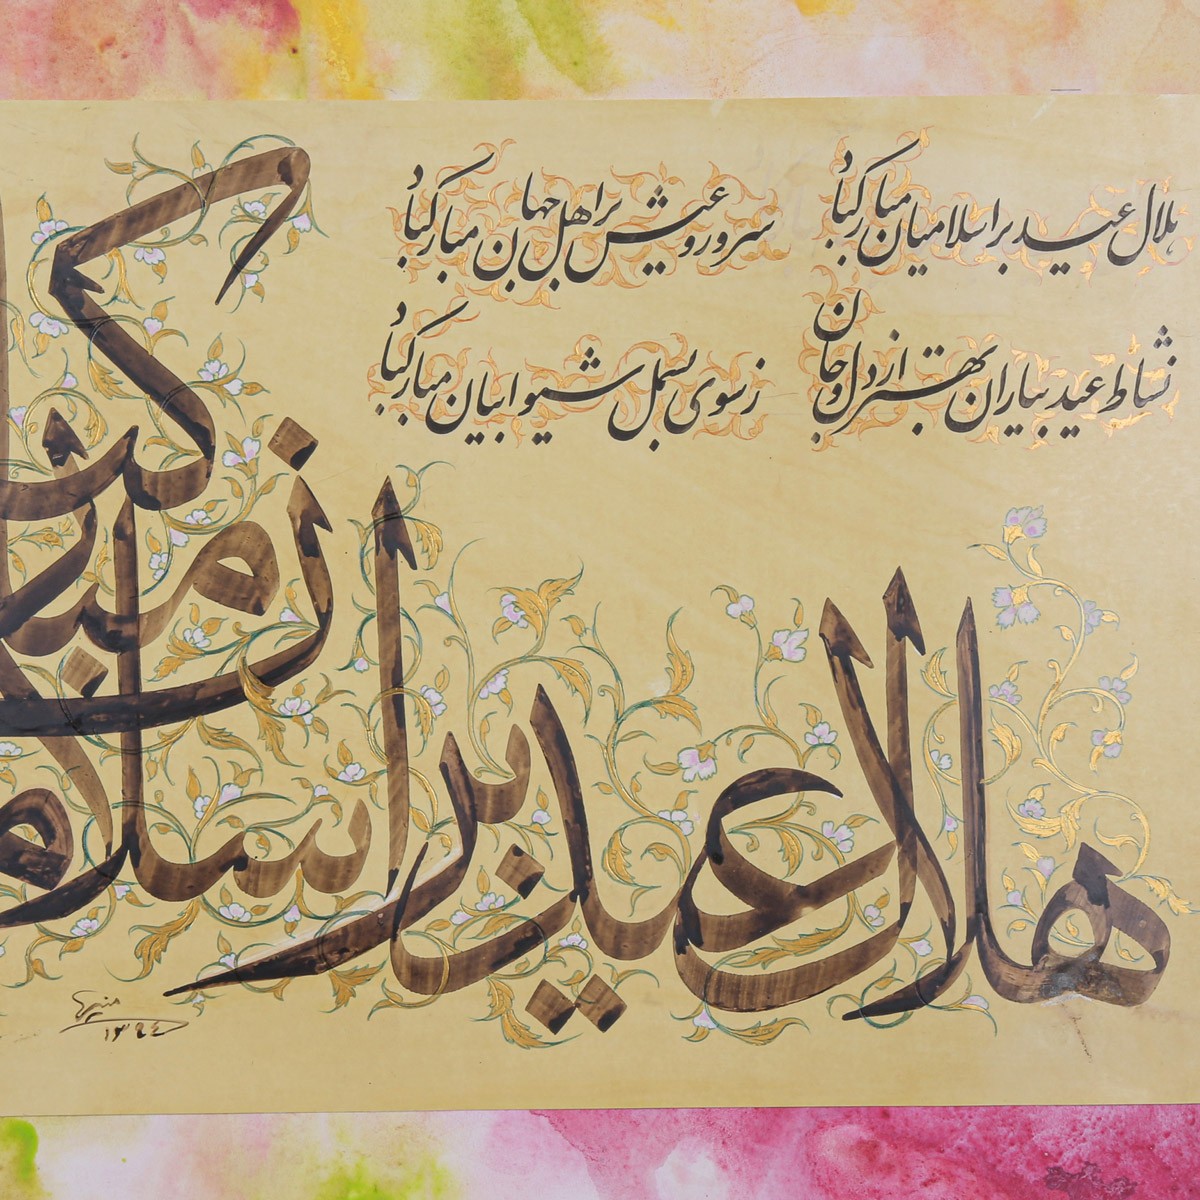 هلال عید بر اسلامیان مبارکباد
سرور و عیش بر اهل جهان مبارکباد
نشاط عید بیاران بهتر از دل و جان
ز سوی بسمل شیوابیان مبارکباد
هلال عید بر اسلامیان مبارکباد
۱۳۶۴